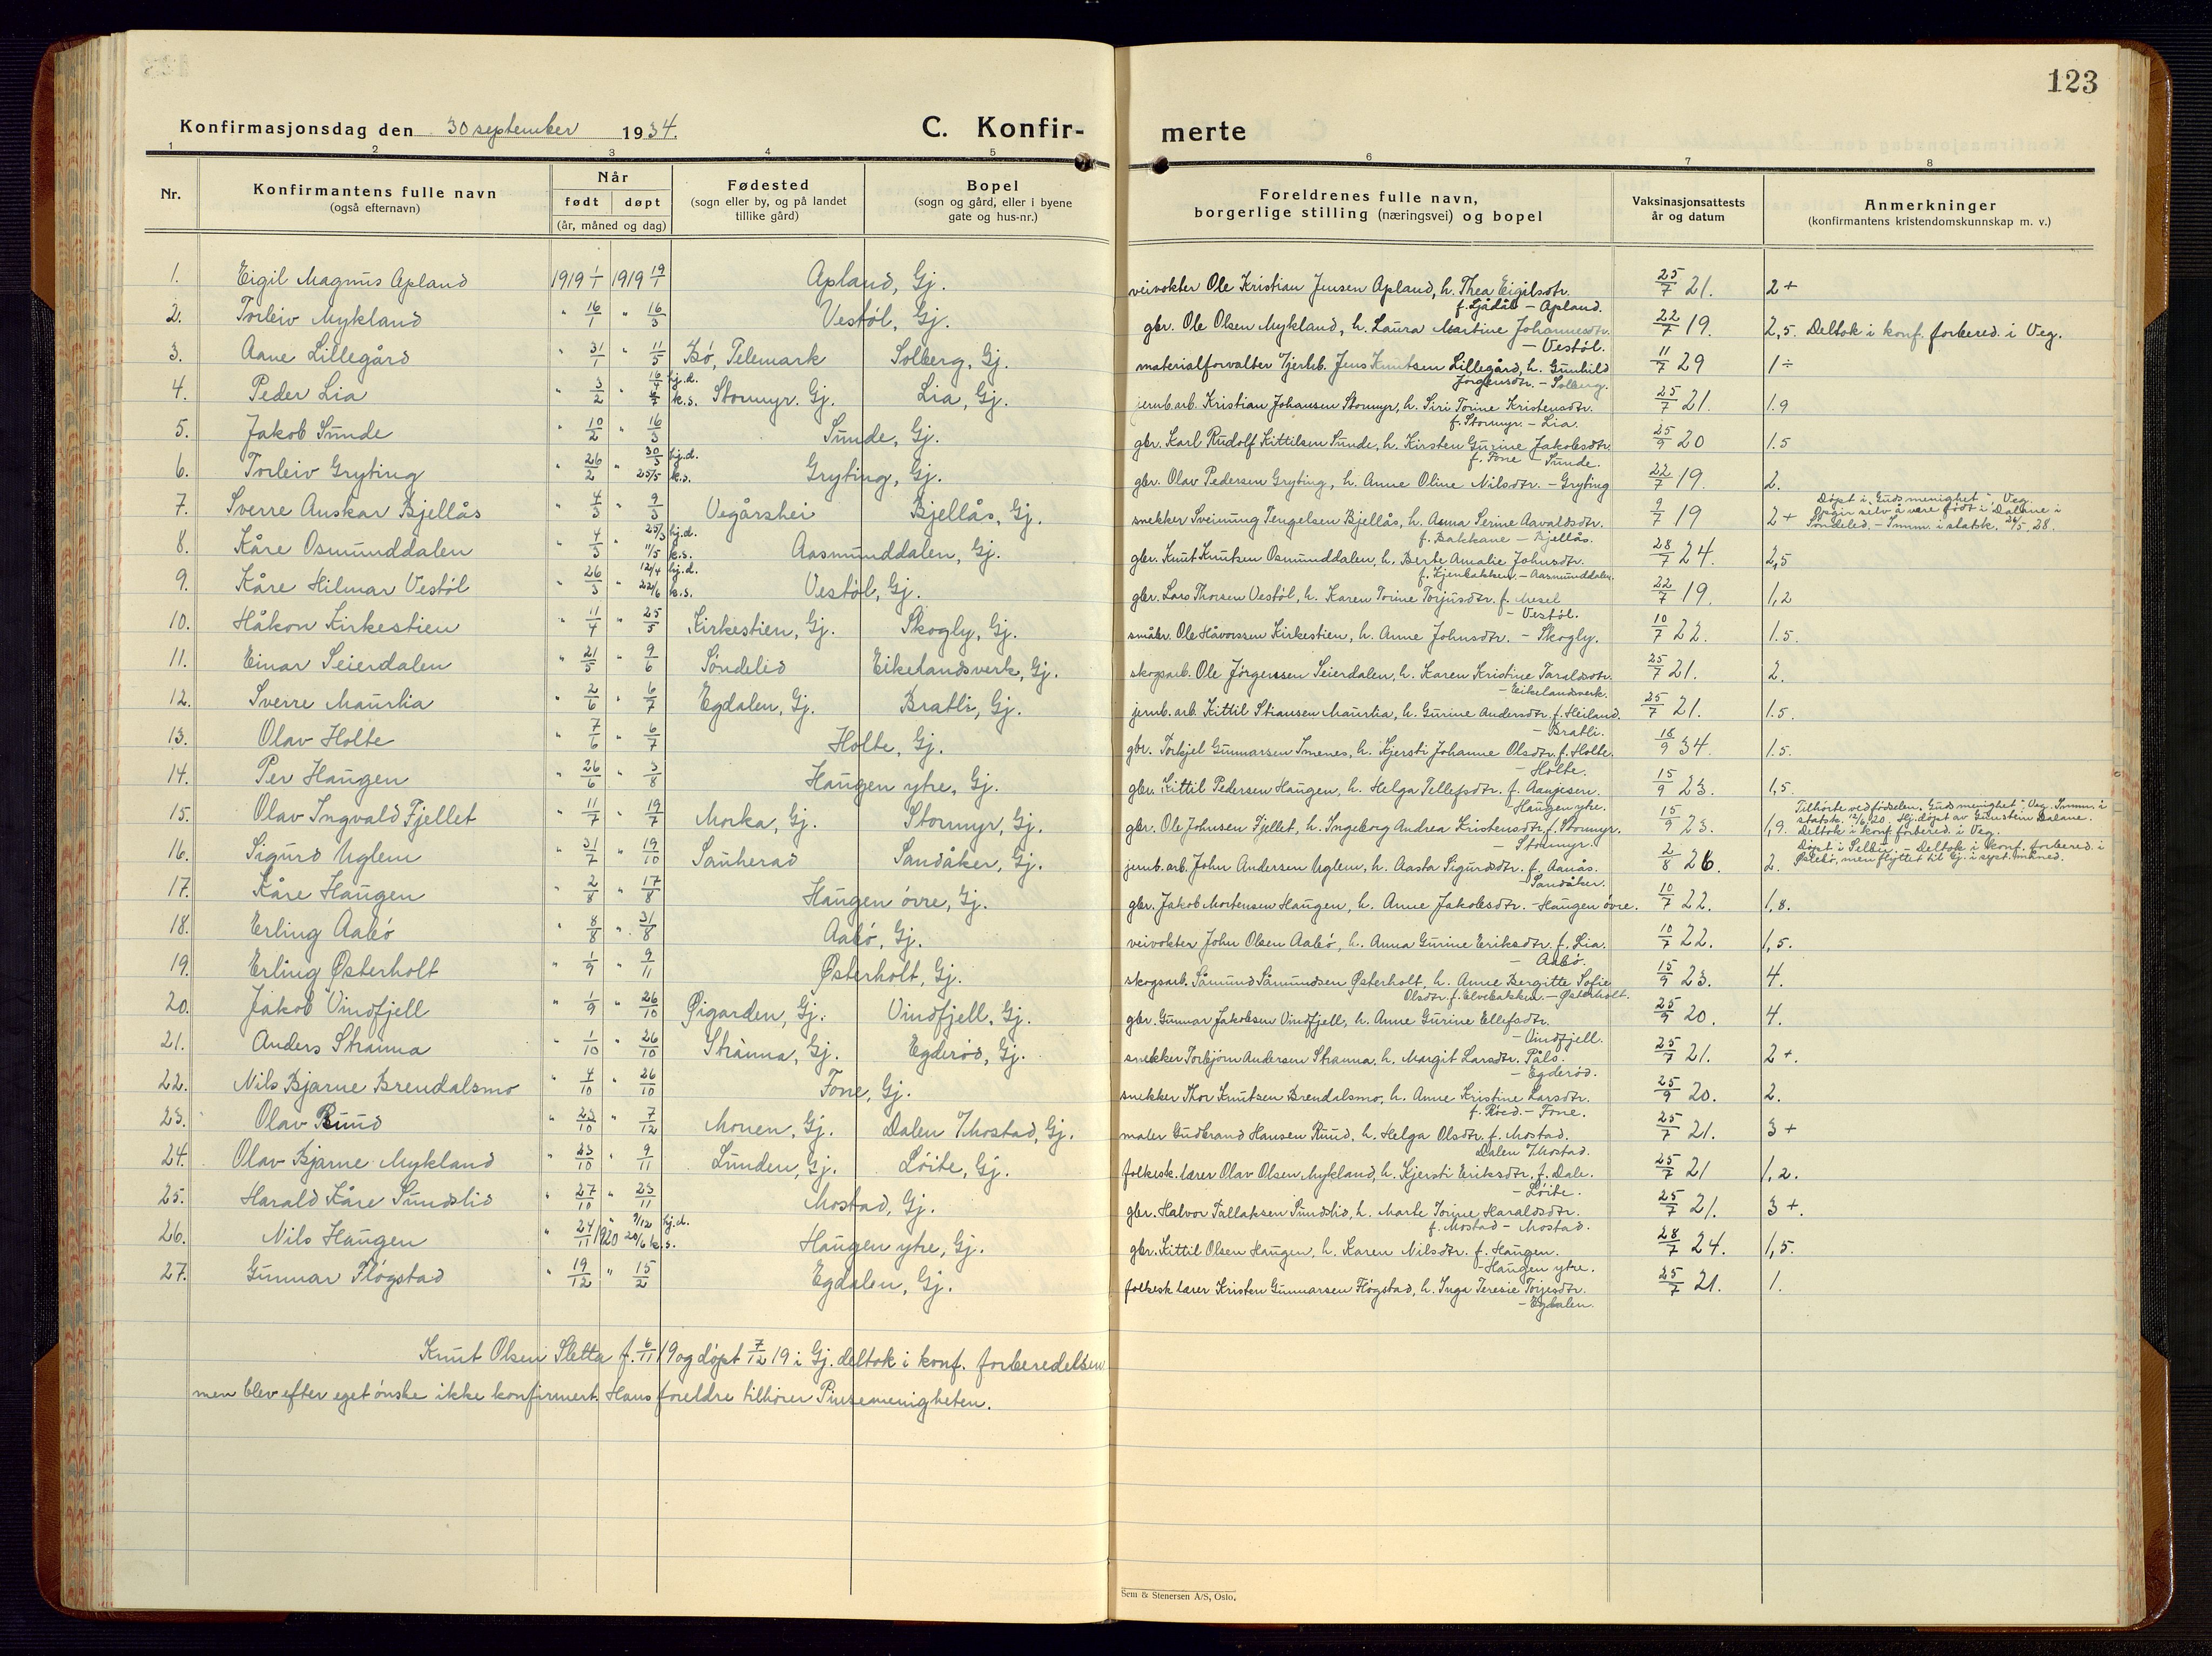 123
Konfirmasjonsdag den 30 september 1934.
C. Konfir-
merte
1 2 3 4 5 6 7 8
Nr. | Konfirmantens fulle navn (også efternavn) | Når født | døpt (år, måned og dag) | Fødested (sogn eller by, og på landet tillike gård) | Bopel (sogn og gård, eller i byene gate og hus-nr.) | Foreldrenes fulle navn, borgerlige stilling (næringsvei) og bopel | Vaksinasjonsattests år og datum | Anmerkninger (konfirmantens kristendomskunnskap m. v.)
1. Eigil Magnus Apland 1919 1/1 1919 19/1 Apland, Gj. veivokter Ole Kristian Jensen Apland, h. Thea Eigilsdtr. f. Ljådal – Apland. 25/7 21. 2+
2. Torleiv Mykland " 16/1 " 16/3 Vestøl, Gj. gbr. Ole Olsen Mykland, h. Laura Martine Johannesdtr. – Vestøl. 22/7 19. 2,5. Deltok i konf. forbered. i Veg.
3. Aane Lillegård " 31/1 " 11/5 Bø, Telemark Solberg, Gj. materialforvalter v/jernb. Jens Knutsen Lillegård, h. Gunhild Jørgensdtr. – Solberg. 11/7 29 1÷
4. Peder Lia " 3/2 " 16/4 hj.d. 6/7 k.s. Stormyr. Gj. Lia, Gj. jernb.arb. Kristian Johansen Stormyr, h. Siri Torine Kristensdtr. f. Stormyr. – Lia. 25/7 21. 1.9
5. Jakob Sunde " 10/2 " 16/3 Sunde, Gj. gbr. Karl Rudolf Kittilsen Sunde, h. Kirsten Gurine Jakobsdtr. f. Fone – Sunde. 25/9 20 1.5
6. Torleiv Gryting " 26/2 " 30/3 hj.d. 25/5 k.s. Gryting, Gj. gbr. Olav Pedersen Gryting, h. Anne Oline Nilsdtr. – Gryting 22/7 19. 2.
7. Sverre Anskar Bjellås " 4/3 " 9/3 Vegårshei Bjellås, Gj. snekker Sveinung Tengelsen Bjellås, h. Anna Serine Aavaldsdtr. f. Bakkane – Bjellås. 9/7 19 2+ Døpt i "Guds menighet", Veg. Opgir selv å være født i Dalane i Søndeled. – Innm. i statsk. 24/5 28.
8. Kåre Osmunddalen " 4/3 " 25/3 hj.d. 11/5 k.s. Aasmunddalen, Gj. gbr. Knut Knutsen Osmunddalen, h. Berte Amalie Johnsdtr. f. Kjenbakken. – Aasmunddalen. 28/7 24. 2,5
9. Kåre Hilmar Vestøl " 26/3 " 12/4 hj.d. 22/6 k.s. Vestøl, Gj. gbr. Lars Thorsen Vestøl, h. Karen Torine Torjusdtr. f. Mesel – Vestøl. 22/7 19. 1,2
10. Håkon Kirkestien " 11/4 " 25/5 Kirkestien, Gj. Skogly, Gj. småbr. Ole Håvorssen Kirkestien, h. Anne Johnsdtr. – Skogly. 10/7 22. 1.5.
11. Einar Seierdalen " 21/5 " 9/6 Søndeled Eikelandsverk, Gj. skogsarb. Ole Jørgenssen Seierdalen, h. Karen Kristine Taraldsdtr. – Eikelandsverk. 25/7 21. 2.
12. Sverre Maurlia " 2/6 " 6/7 Egdalen, Gj. Bratli, Gj. jernb. arb. Kittil Stiansen Maurlia, h. Gurine Andersdtr. f. Heiland. – Bratli. 25/7 21. 1.5.
13. Olav Holte " 7/6 " 6/7 Holte, Gj. gbr. Torkjel Gunnarsen Imenes, h. Kjersti Johanne Olsdtr. f. Holte. – Holte. 18/9 34. 1.5.
14. Per Haugen " 26/6 " 3/8 Haugen ytre, Gj. gbr. Kittil Pedersen Haugen, h. Helga Tellefsdtr. f. Aanjesen. – Haugen ytre. 15/9 23. 1,5.
15. Olav Ingvald Fjellet " 11/7 " 19/7 Morka, Gj. Stormyr, Gj. gbr. Ole Johnsen Fjellet, h. Ingeborg Andrea Kristensdtr. f. Stormyr. – Stormyr. 15/9 23. 1,9. Tilhørte ved fødselen "Guds menighet", Veg. Innm. i statsk. 12/6 20. Hj.døpt av Gunstein Dalane. Deltok i konf. forbered. i Veg.
16. Sigurd Uglem " 31/7 " 19/10 Sauherad Sandåker, Gj. jernb. arb. John Andersen Uglem, h. Aasta Sigurdsdtr. f. Aanås. – Sandåker. 2/8 26. 2. Døpt i Selbu. – Deltok i konf. forbered. i , men flyttet til Gj. i sept. måned.
17. Kåre Haugen " 2/8 " 17/8 Haugen øvre, Gj. gbr. Jakob Mortensen Haugen, h. Anne Jakobsdtr. – Haugen øvre. 10/7 22. 1,8.
18. Erling Aabø " 8/8 " 31/8 Aabø, Gj. veivokter John Olsen Aabø, h. Anna Gurine Eriksdtr. f. Lia. – Aabø. 10/7 22. 1,5.
19. Erling Østerholt " 1/9 " 9/11 Østerholt, Gj. skogsarb. Såmund Såmundsen Østerholt, h. Anne Bergitte Sofie Olsdtr. f. Elvebakken. – Østerholt. 15/9 23. 4.
20. Jakob Vindfjell " 1/9 " 26/10 Øigarden, Gj. Vindfjell, Gj. gbr. Gunnar Jakobsen Vindfjell, h. Anne Gurine Ellefsdtr. – Vindfjell. 25/9 20. 4.
21. Anders Stranna " 1/10 " 26/10 Stranna, Gj. Egderød, Gj. snekker Torbjørn Andersen Stranna, h. Margit Larsdtr. Påls. – Egderød. 25/7 21. 2+.
22. Nils Bjarne Brendalsmo " 4/10 " 26/10 Fone, Gj. snekker Thor Knutsen Brendalsmo, h. Anne Kristine Larsdtr. f. Röed. – Fone. 25/9 20. 2.
23. Olav Ruud " 23/10 " 7/12 Monen, Gj. Dalen v/Mostad, Gj. maler Gudbrand Hansen Ruud, h. Helga Olsdtr. f. Mostad. Dalen v/Mostad. 25/7 21. 3+
24. Olav Bjarne Mykland " 23/10 " 9/11 Lunden, Gj. Løite, Gj. folkesk. lærer Olav Olsen Mykland, h. Kjersti Eriksdtr. f. Dale. – Løite. 25/7 21 1,2.
25. Harald Kåre Sundslid " 27/10 " 23/11 Mostad, Gj. gbr. Halvor Tallaksen Sundslid, h. Marte Torine Haraldsdtr. f. Mostad – Mostad. 25/7 21. 3+.
26. Nils Haugen " 24/11 " 9/120 hj.d. 1920 20/6 k.s. Haugen ytre, Gj. gbr. Kittil Olsen Haugen, h. Karen Nilsdtr. f. Haugen. – Haugen ytre. 28/7 24. 1,5.
27. Gunnar Fløgstad " 19/12 " 15/2 Egdalen, Gj. folkesk lærer Kristen Gunnarsen Fløgstad, h. Inga Teresie Torjesdtr. – Egdalen. 25/7 21. 1.
Knut Olsen Sletta f. 6/11 19 og døpt 7/12 19 i Gj. deltok i konf. forberedelsen
men blev efter eget ønske ikke konfirmert. Hans foreldre tilhører Pinsemenigheten.
Sem & Stenersen A/S, Oslo.